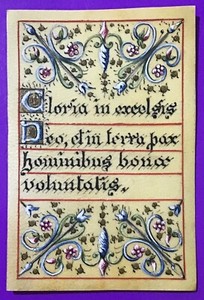 Gloria in excelsis
Deo, et in terra pax
hominibus bonæ
voluntatis.